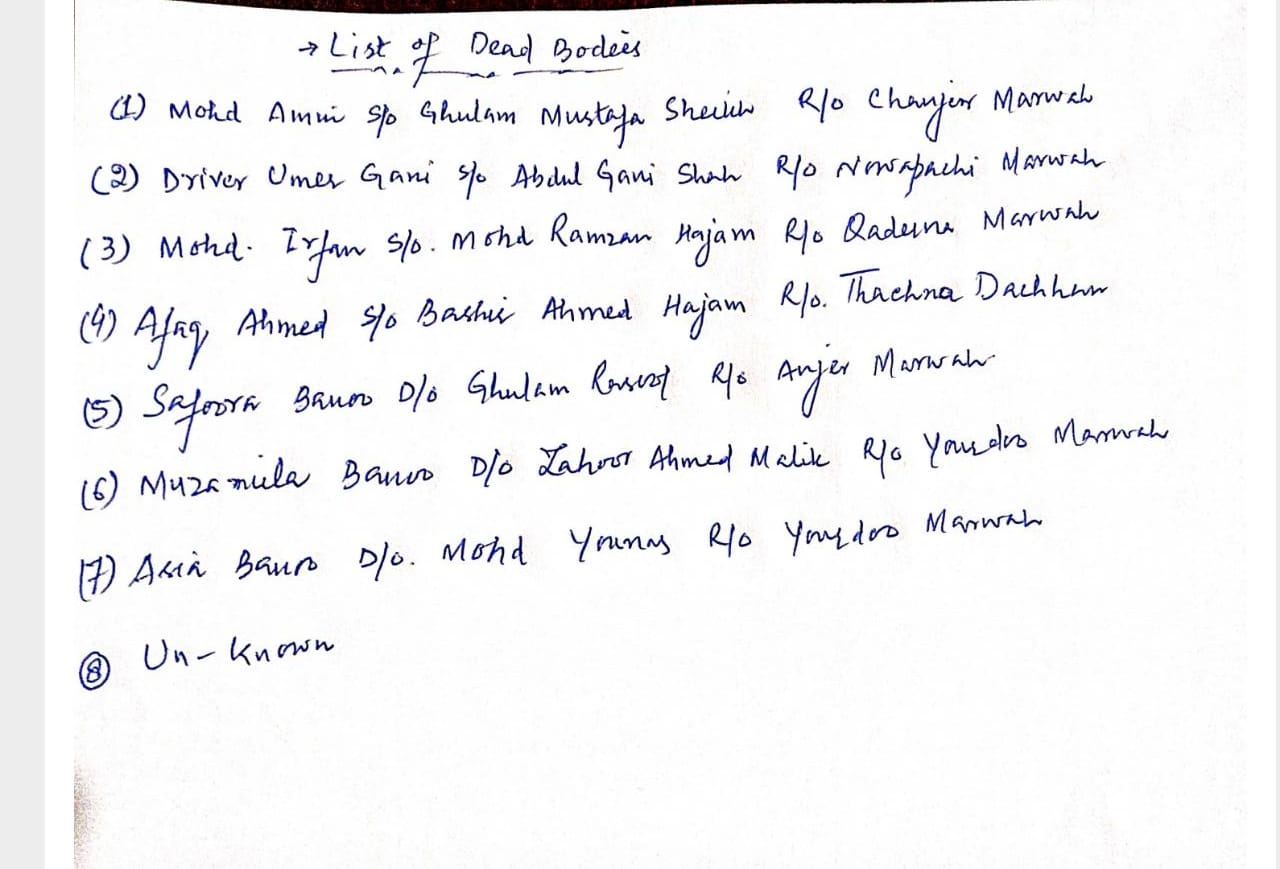 → List of Dead Bodies
(1) Mohd Amin S/o Ghulam Mustafa Sheikh R/o Chanjer Marwah
(2) Driver Umer Gani S/o Abdul Gani Shah R/o Nowapachi Marwah
(3) Mohd. Irfan S/o. Mohd Ramzan Hajam R/o Qaderna Marwah
(4) Afaq Ahmed S/o Bashir Ahmed Hajam R/o. Thachna Dachhan
(5) Safoora Banoo D/o Ghulam Rasool R/o Anjer Marwah
(6) Muzamila Banoo D/o Zahoor Ahmed Malik R/o Yourdoo Marwah
(7) Asia Banoo D/o. Mohd Younas R/o Yourdoo Marwah
(8) Un-known